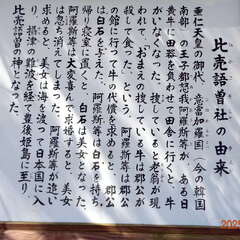 比売語曽社の由来
垂仁天皇の御代、意富加羅国(今の韓国
南部)の王子都怒我阿羅斯等が、ある日
黄牛に田器を負わせて田舎に行くと、牛
がいなくなった。捜していると老翁が現
われて、「おまえの捜している牛は郡公が
殺して食った」という。阿羅斯等は郡公
の館に行って牛の代価を求めると、郡公
は白石を与えた。阿羅斯等は白石を持ち
帰り寝室に置くと、白石は美女となった。
阿羅斯等は大変喜んで求婚すると、美女
は急ち消えてしまった。阿羅斯等が追い
求めると、美女は海を渡って日本国に入
り、摂津の難波を経て、豊後姫島に至り
比売語曽の神となった。